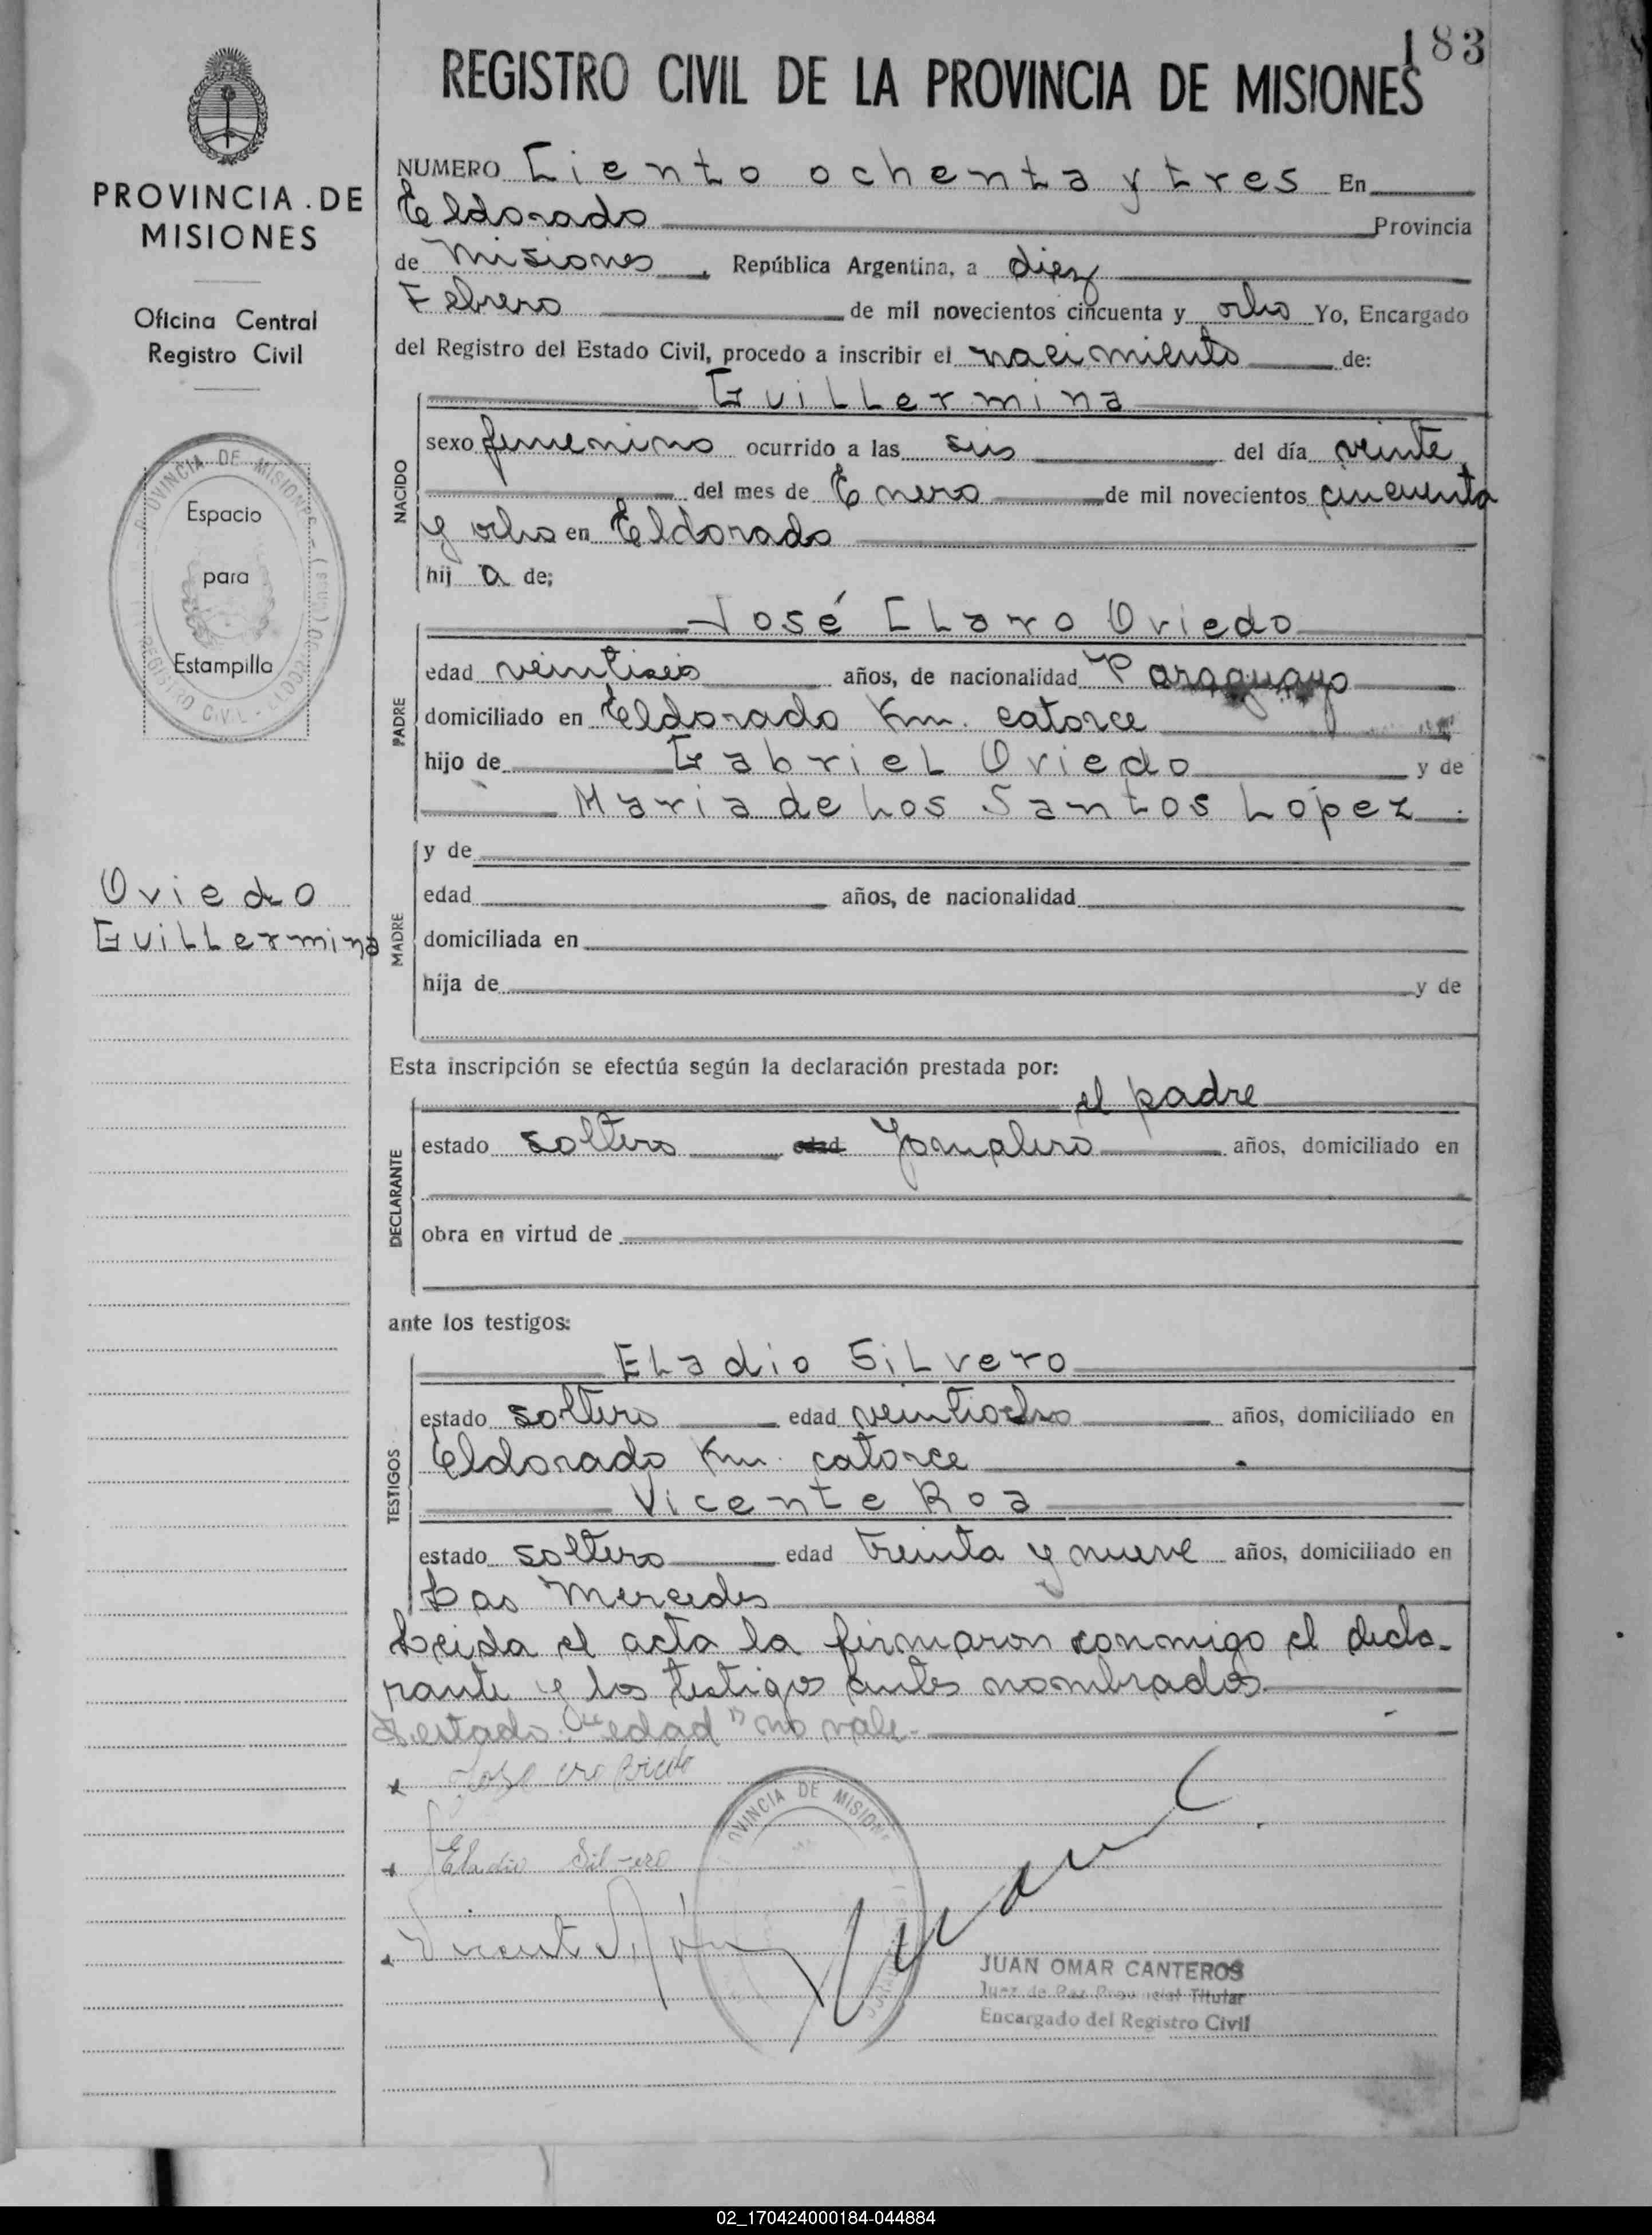 183
REGISTRO CIVIL DE LA PROVINCIA DE MISIONES
PROVINCIA DE
MISIONES
Oficina Central
Registro Civil
Espacio
para
Estampilla
Oviedo
Guillermina
NUMERO Ciento ochenta y tres En
Eldorado Provincia
de Misiones, República Argentina, a diez
Febrero de mil novecientos cincuenta y ocho Yo, Encargado
del Registro del Estado Civil, procedo a inscribir el nacimiento de:
NACIDO
Guillermina
sexo femenino ocurrido a las seis del día veinte
del mes de Enero de mil novecientos cincuenta
y ocho en Eldorado
hij a de;
PADRE
José Claro Oviedo
edad veintiseis años, de nacionalidad Paraguayo
domiciliado en Eldorado Km. catorce
hijo de Gabriel Oviedo y de
Maria de Los Santos Lopez.
MADRE
y de
edad años, de nacionalidad
domiciliada en
hija de y de
Esta inscripción se efectúa según la declaración prestada por:
DECLARANTE
el padre
estado soltero edad Jornalero años, domiciliado en
obra en virtud de
ante los testigos:
TESTIGOS
Eladio Silvero
estado soltero edad veintiocho años, domiciliado en
Eldorado Km. catorce
Vicente Roa
estado soltero edad treinta y nueve años, domiciliado en
Las Mercedes
Leida el acta la firmaron conmigo el decla-
rante y los testigos antes nombrados.
Testado: "edad" no vale.-
Eladio Silvero
PROVINCIA DE MISIONES
JUAN OMAR CANTEROS
Juez de Paz Provincial Titular
Encargado del Registro Civil
02_170424000184-044884